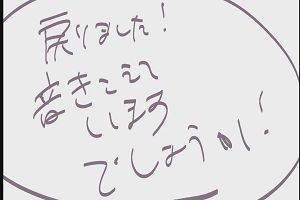 戻りました!
音きこえて
います
でしょうか!